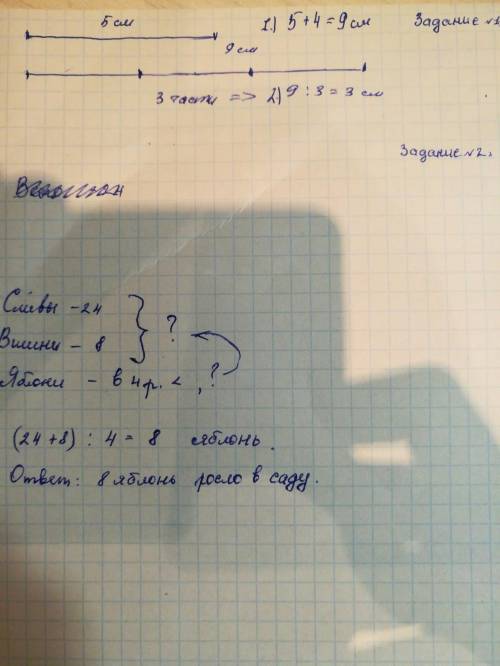 5 см 1.) 5+4=9 см Задание №1
9 см
3 части => 2) 9 : 3 = 3 см
Задание №2.
Сливы - 24
Вишни - 8 ?
Яблони - в 4 р. <, ?
(24+8) : 4 = 8 яблонь.
Ответ: 8 яблонь росло в саду.